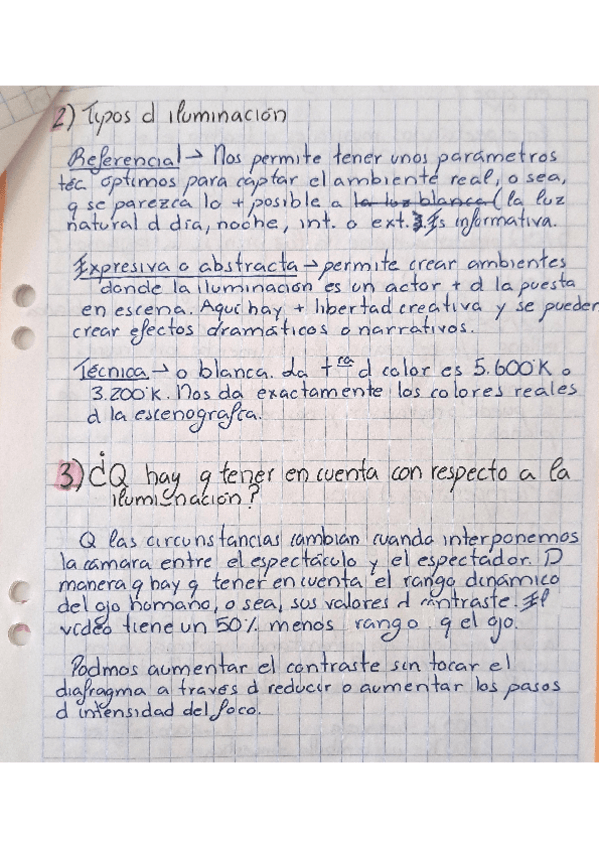 2) Typos d iluminación
Referencial → Nos permite tener unos parámetros
téc óptimos para captar el ambiente real, o sea,
q se parezca lo + posible a la luz blanca (la luz
natural d día, noche, int. o ext. Es informativa.
Expresiva o abstracta → permite crear ambientes
donde la iluminación es un actor + d la puesta
en escena. Aquí hay + libertad creativa y se pueden
crear efectos dramáticos o narrativos.
Técnica → o blanca. da tra d color es 5.600°K o
3.200°K. Nos da exactamente los colores reales
d la escenografía.
3) ¿Q hay q tener en cuenta con respecto a la
ilumignación?
Q las circunstancias cambian cuando interponemos
la cámara entre el espectáculo y el espectador. D
manera q hay q tener en cuenta el rango dinámico
del ojo humano, o sea, sus valores d contraste. El
vídeo tiene un 50% menos rango q el ojo.
Podmos aumentar el contraste sin tocar el
diafragma a través d reducir o aumentar los pasos
d intensidad del foco.